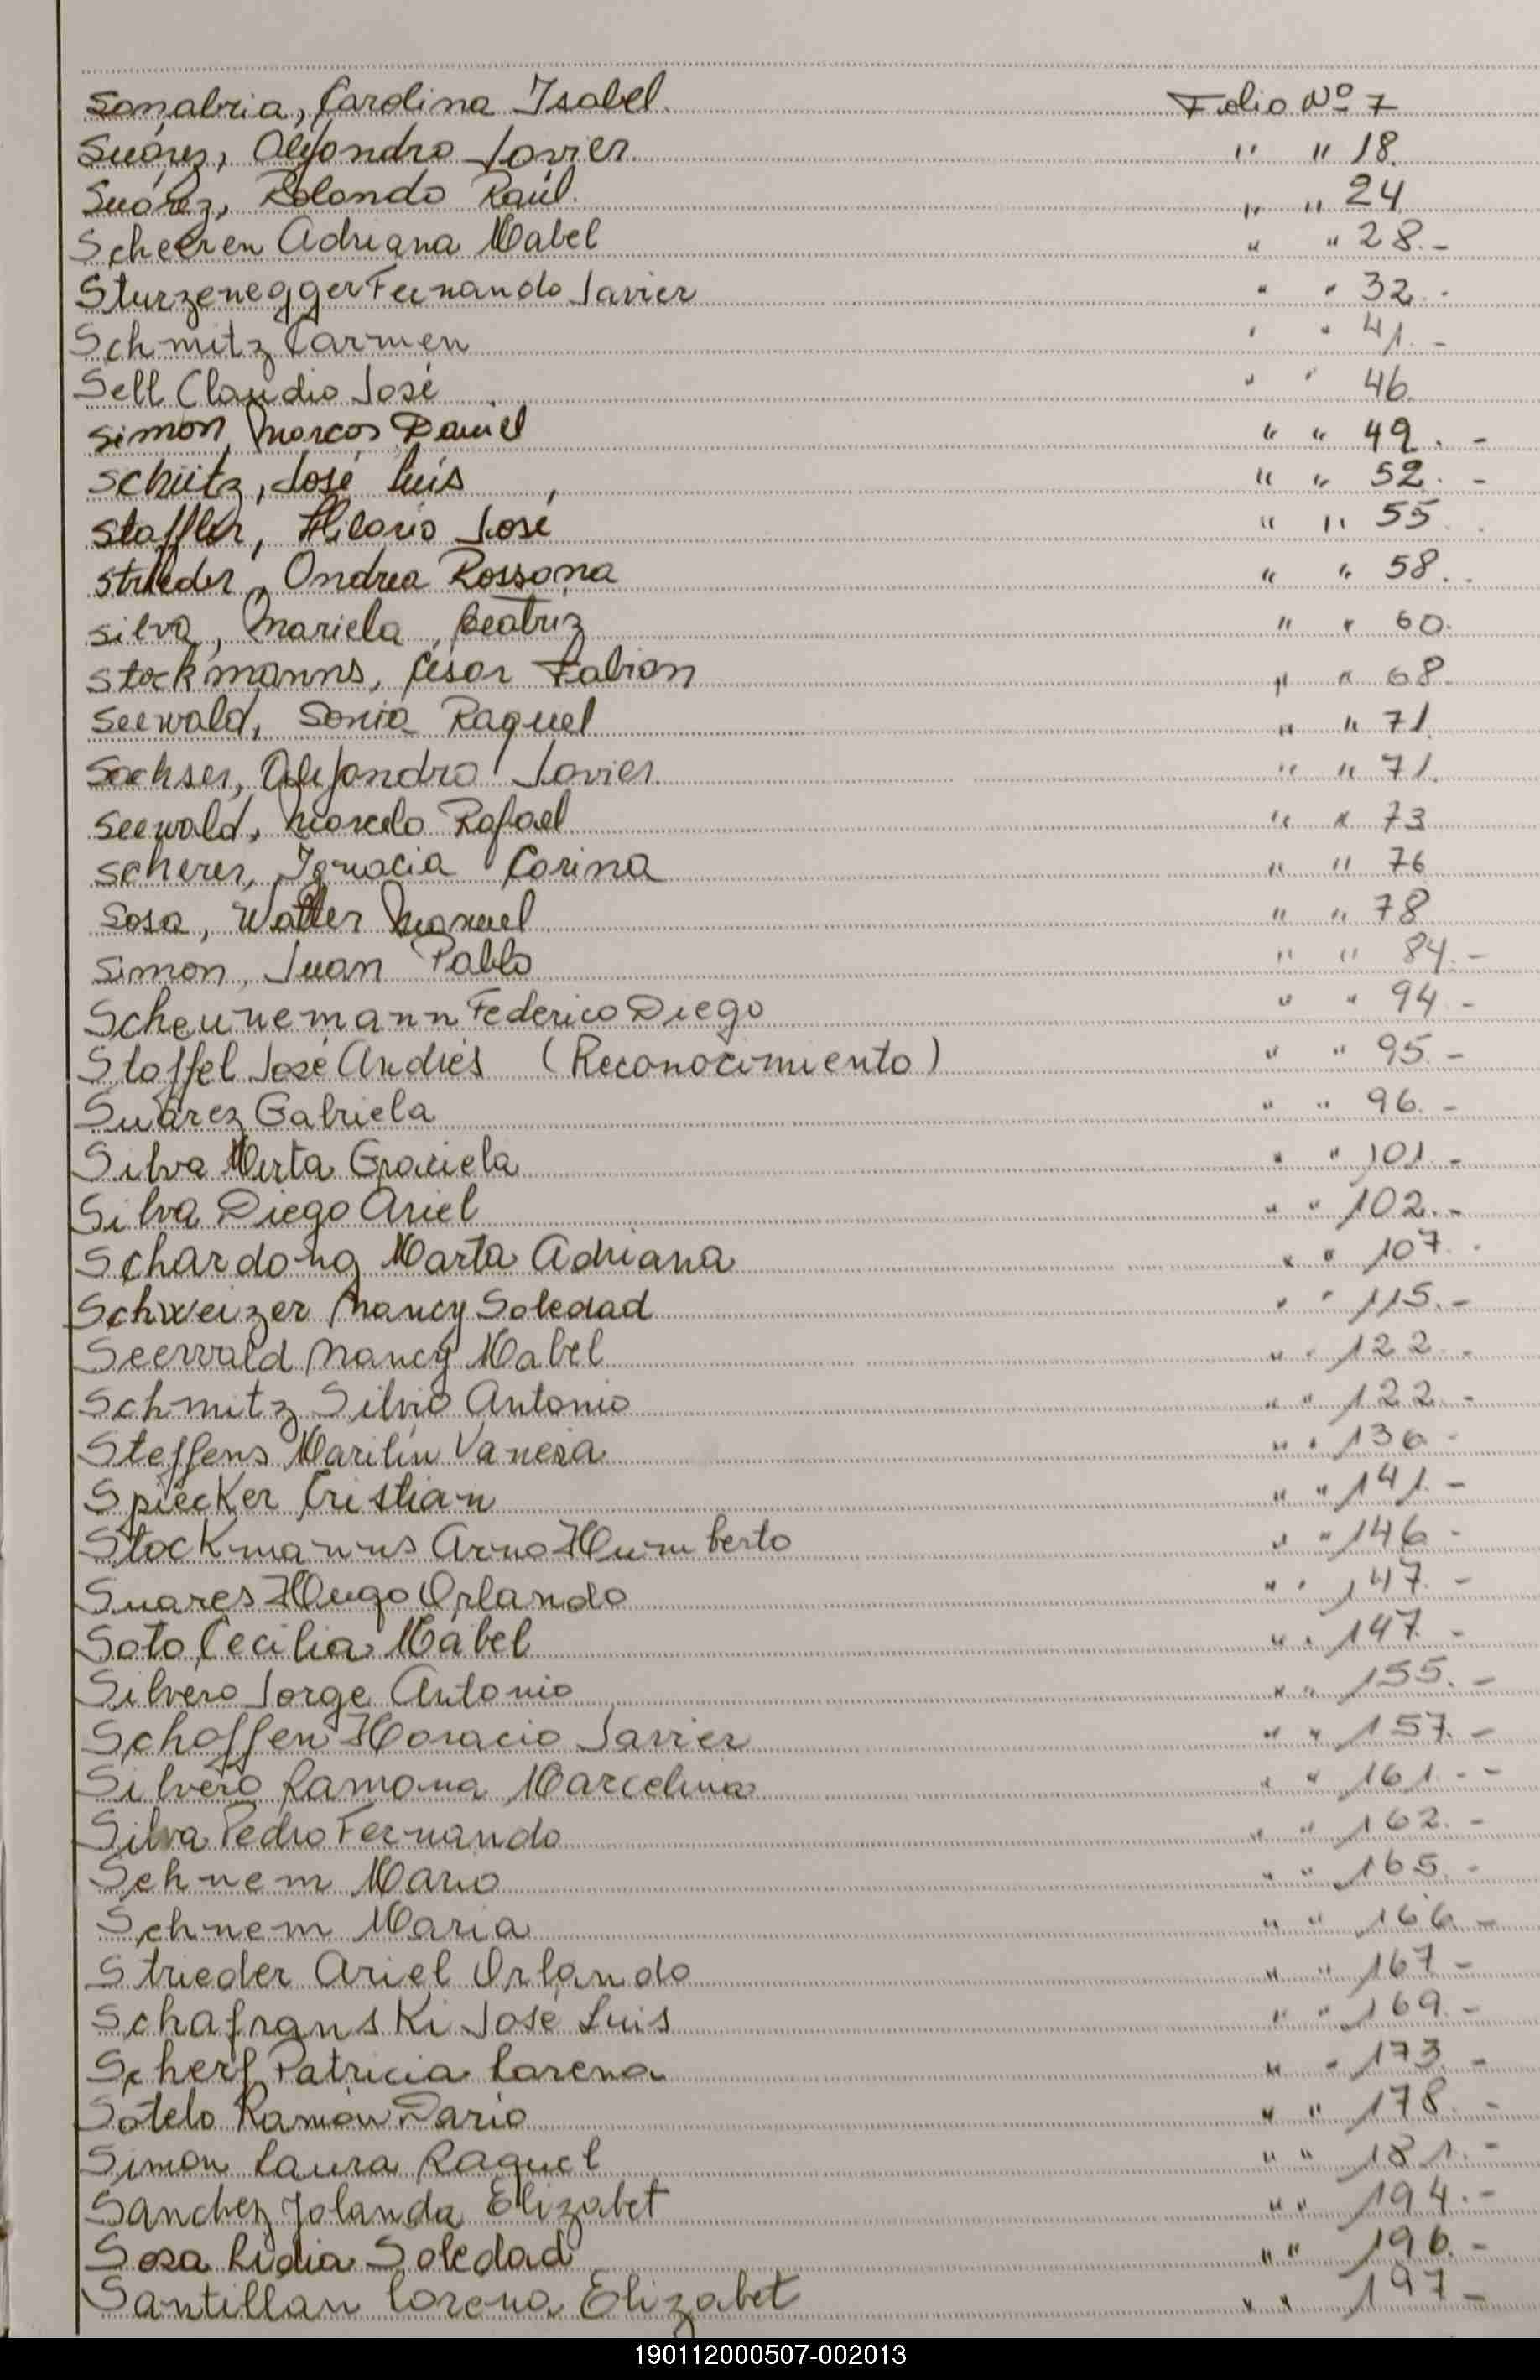 Sanabria, Carolina Isabel. Folio Nº 7
Suárez, Alejandro Javier. " " 18.
Suárez, Rolando Raúl. " " 24
Scheeren Adriana Mabel " " 28.-
Sturzenegger Fernando Javier " " 32.-
Schmitz Carmen " " 41.-
Sell Claudio José " " 46.
Simon, Marcos Daniel " " 49.-
Schütz, José Luis " " 52.-
Staffler, Hilario José " " 55.
Strieder, Andrea Rossana " " 58..
Silva, Mariela, Beatriz " " 60.
Stockmanns, César Fabian " " 68.
Seewald, Sonia Raquel " " 71.
Sachser, Alejandro Javier. " " 71.
Seewald, Marcelo Rafael " " 73
Scherer, Ignacia Corina " " 76
Sosa, Walter Manuel. " " 78
Simon, Juan Pablo " " 84.-
Scheunemann Federico Diego " " 94.-
Stoffel José Andrés (Reconocimiento) " " 95.-
Suárez Gabriela " " 96.-
Silva Mirta Graciela " " 101.-
Silva Diego Ariel " " 102.-
Schardong Marta Adriana " " 107.-
Schweizer Nancy Soledad " " 115.-
Seewald Nancy Mabel " " 122.-
Schmitz Silvio Antonio " " 122.-
Steffens Marilín Vanesa " " 136-
Spiecker Cristian " " 141.-
Stockmanns Arno Humberto " " 146-
Suares Hugo Orlando " " 147.-
Soto Cecilia Mabel " " 147.-
Silvero Jorge Antonio " " 155.-
Schoffen Horacio Javier " " 157.-
Silvero Ramona Marcelina " " 161.--
Silva Pedro Fernando " " 162.-
Sehnem Mario " " 165.-
Sehnem Maria " " 166-
Strieder Ariel Orlando " " 167-
Schafranski José Luis " " 169.-
Scherf Patricia Lorena " " 173-
Sotelo Ramón Dario " " 178.-
Simon Laura Raquel " " 181.-
Sanchez Yolanda Elizabet " " 194.-
Sosa Lidia Soledad " " 196.-
Santillan Lorena Elizabet " " 197-
190112000507-002013